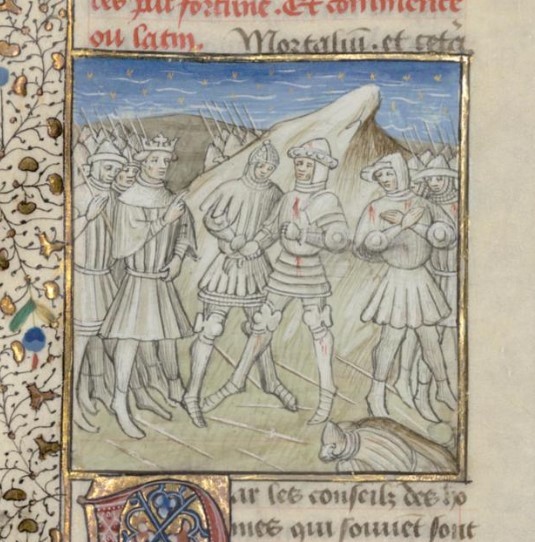 les par fortune. Et commence
ou latin. Mortaliũ. et cetã
ar les conseilz des ho
mes qui souuēt sont